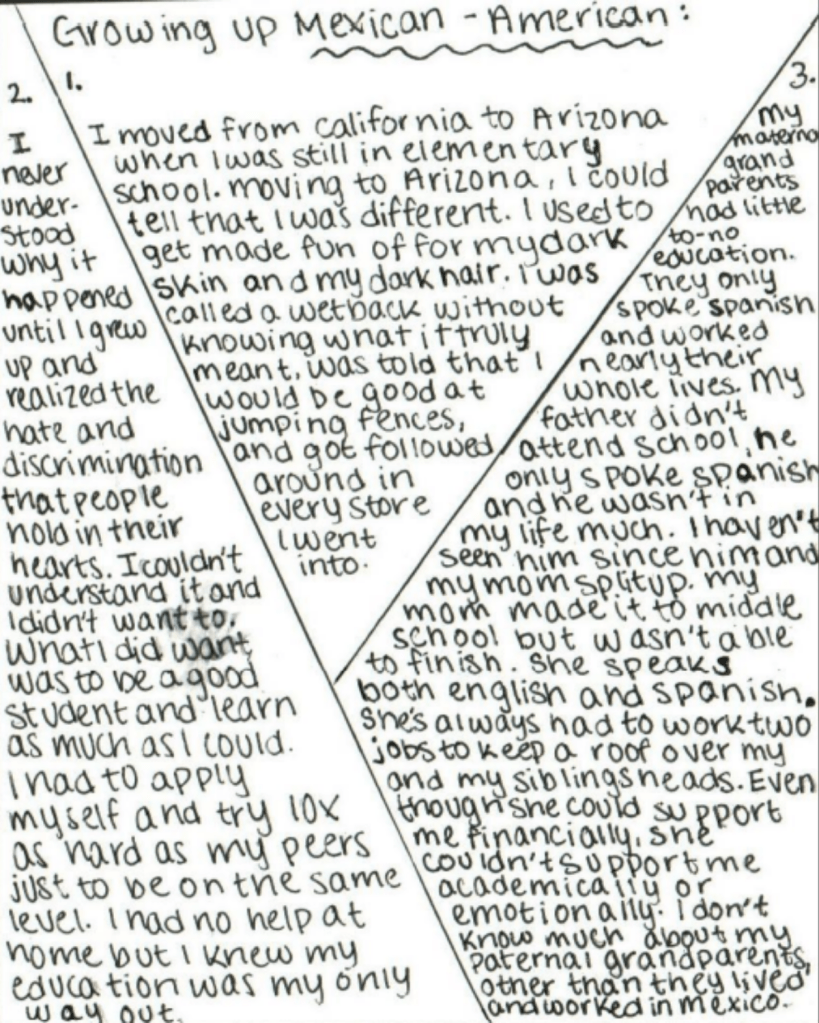 Growing up Mexican-American:
1.
I moved from California to Arizona
when I was still in elementary
school. moving to Arizona, I could
tell that I was different. I used to
get made fun of for my dark
skin and my dark hair. I was
called a wetback without
knowing what it truly
meant, was told that I
would be good at
jumping fences,
and got followed
around in
every store
I went
into.
2.
I
never
under-
stood
why it
happened
until I grew
up and
realized the
hate and
discrimination
that people
hold in their
hearts. I couldn't
understand it and
I didn't want to.
What I did want
was to be a good
student and learn
as much as I could.
I had to apply
myself and try 10x
as hard as my peers
just to be on the same
level. I had no help at
home but I knew my
education was my only
way out.
3.
My
materna
grand
parents
had little
to-no
education.
They only
spoke spanish
and worked
nearly their
whole lives. My
father didn't
attend school, he
only spoke spanish
and he wasn't in
my life much. I haven't
seen him since him and
my mom split up. my
mom made it to middle
school but wasn't able
to finish. She speaks
both english and spanish.
She's always had to work two
jobs to keep a roof over my
and my siblings heads. Even
though she could support
me financially, she
couldn't support me
academically or
emotionally. I don't
know much about my
paternal grandparents,
other than they lived
and worked in mexico.